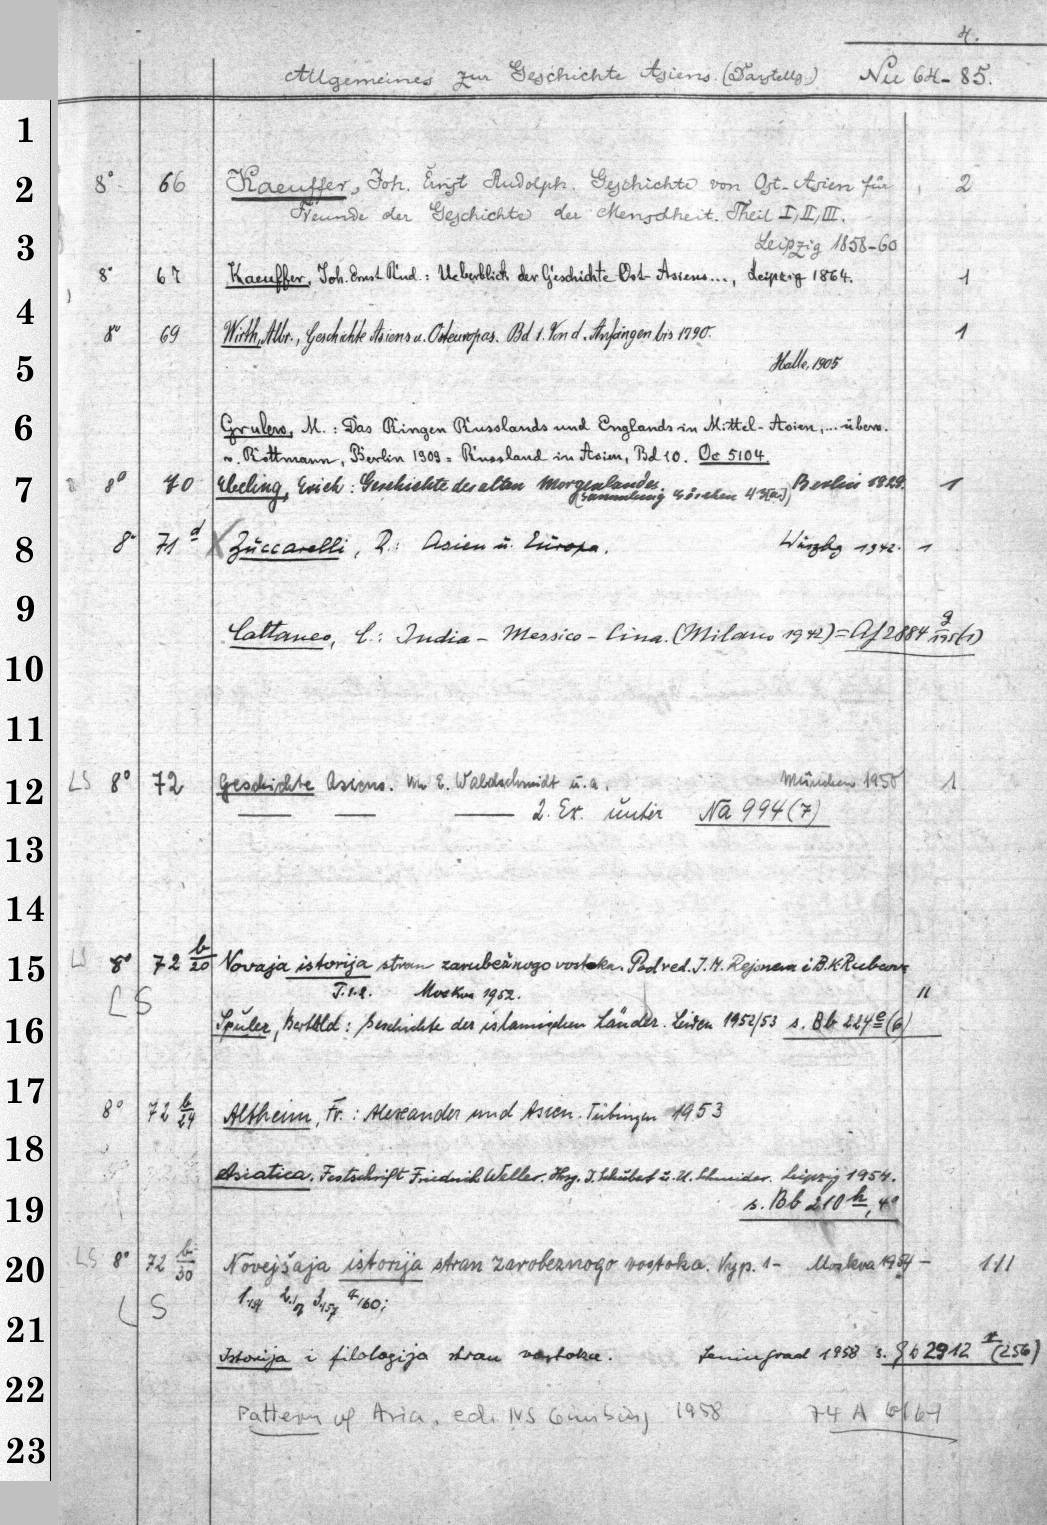 4.
Allgemeines zur Geschichte Asiens. (Darstellg.) Nu 64-85.
1
2 8° 66 Kaeuffer, Joh. Ernst Rudolph. Geschichte von Ost-Asien für 2
Freunde der Geschichte der Menschheit. Theil I, II, III.
3 Leipzig 1858-60
8° 67 Kaeuffer, Joh. Ernst Rud.: Ueberblick der Geschichte Ost-Asiens..., Leipzig 1864. 1
4
8° 69 Wirth, Albr., Geschichte Asiens u. Osteuropas. Bd 1. Von d. Anfängen bis 1790. 1
5 Halle, 1905
6 Grulew, M.: Das Ringen Russlands und Englands in Mittel-Asien,... übers.
v. Rottmann, Berlin 1909 = Russland in Asien, Bd 10. Oc 5104.
7 8° 70 Ebeling, Erich: Geschichte des alten Morgenlandes. Berlin 1929. 1
(Sammlung Göschen 43)
8 8° 71 d Zuccarelli, R.: Asien u. Europa. Würzbg 1942. 1
9
Cattaneo, C.: India - Messico - Cina. (Milano 1942) = Af 2884 g/115(1)
10
11
12 LS 8° 72 Geschichte Asiens. von E. Waldschmidt u. a. München 1950 1
2. Ex. unter Na 994(7)
13
14
15 LS 8° 72 b/20 Novaja istorija stran zarubežnogo vostoka. Pod red. I. M. Rejsnera i B. K. Rubcova
T. 1.2. Moskva 1952. 11
LS
16 Spuler, Berthold: Geschichte der islamischen Länder. Leiden 1952/53 s. Bb 224 e (6)
17
8° 72 b/24 Altheim, Fr.: Alexander und Asien. Tübingen 1953
18
Asiatica. Festschrift Friedrich Weller. Hrsg. J. Schubert u. U. Schneider. Leipzig 1954.
19 s. Bb 210 h, 4°
20 LS 8° 72 b/30 Novejšaja istorija stran zarobeznogo vostoka. Vyp. 1- Moskva 1954 - 111
LS
21
Istorija i filologija stran vostoka. Leningrad 1958 s. Zb 2912 (256)
22
Pattern of Asia, ed. NS Ginsburg 1958 74 A
23